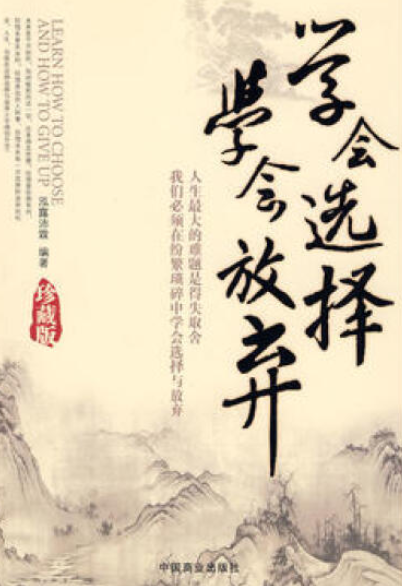 学会选择
學会放弃
人生最大的难题是得失取舍
我们必须在纷繁琐碎中学会选择与放弃
LEARN HOW TO CHOOSE
AND HOW TO GIVE UP
泓露沛霖 编著
珍藏版
中国商业出版社